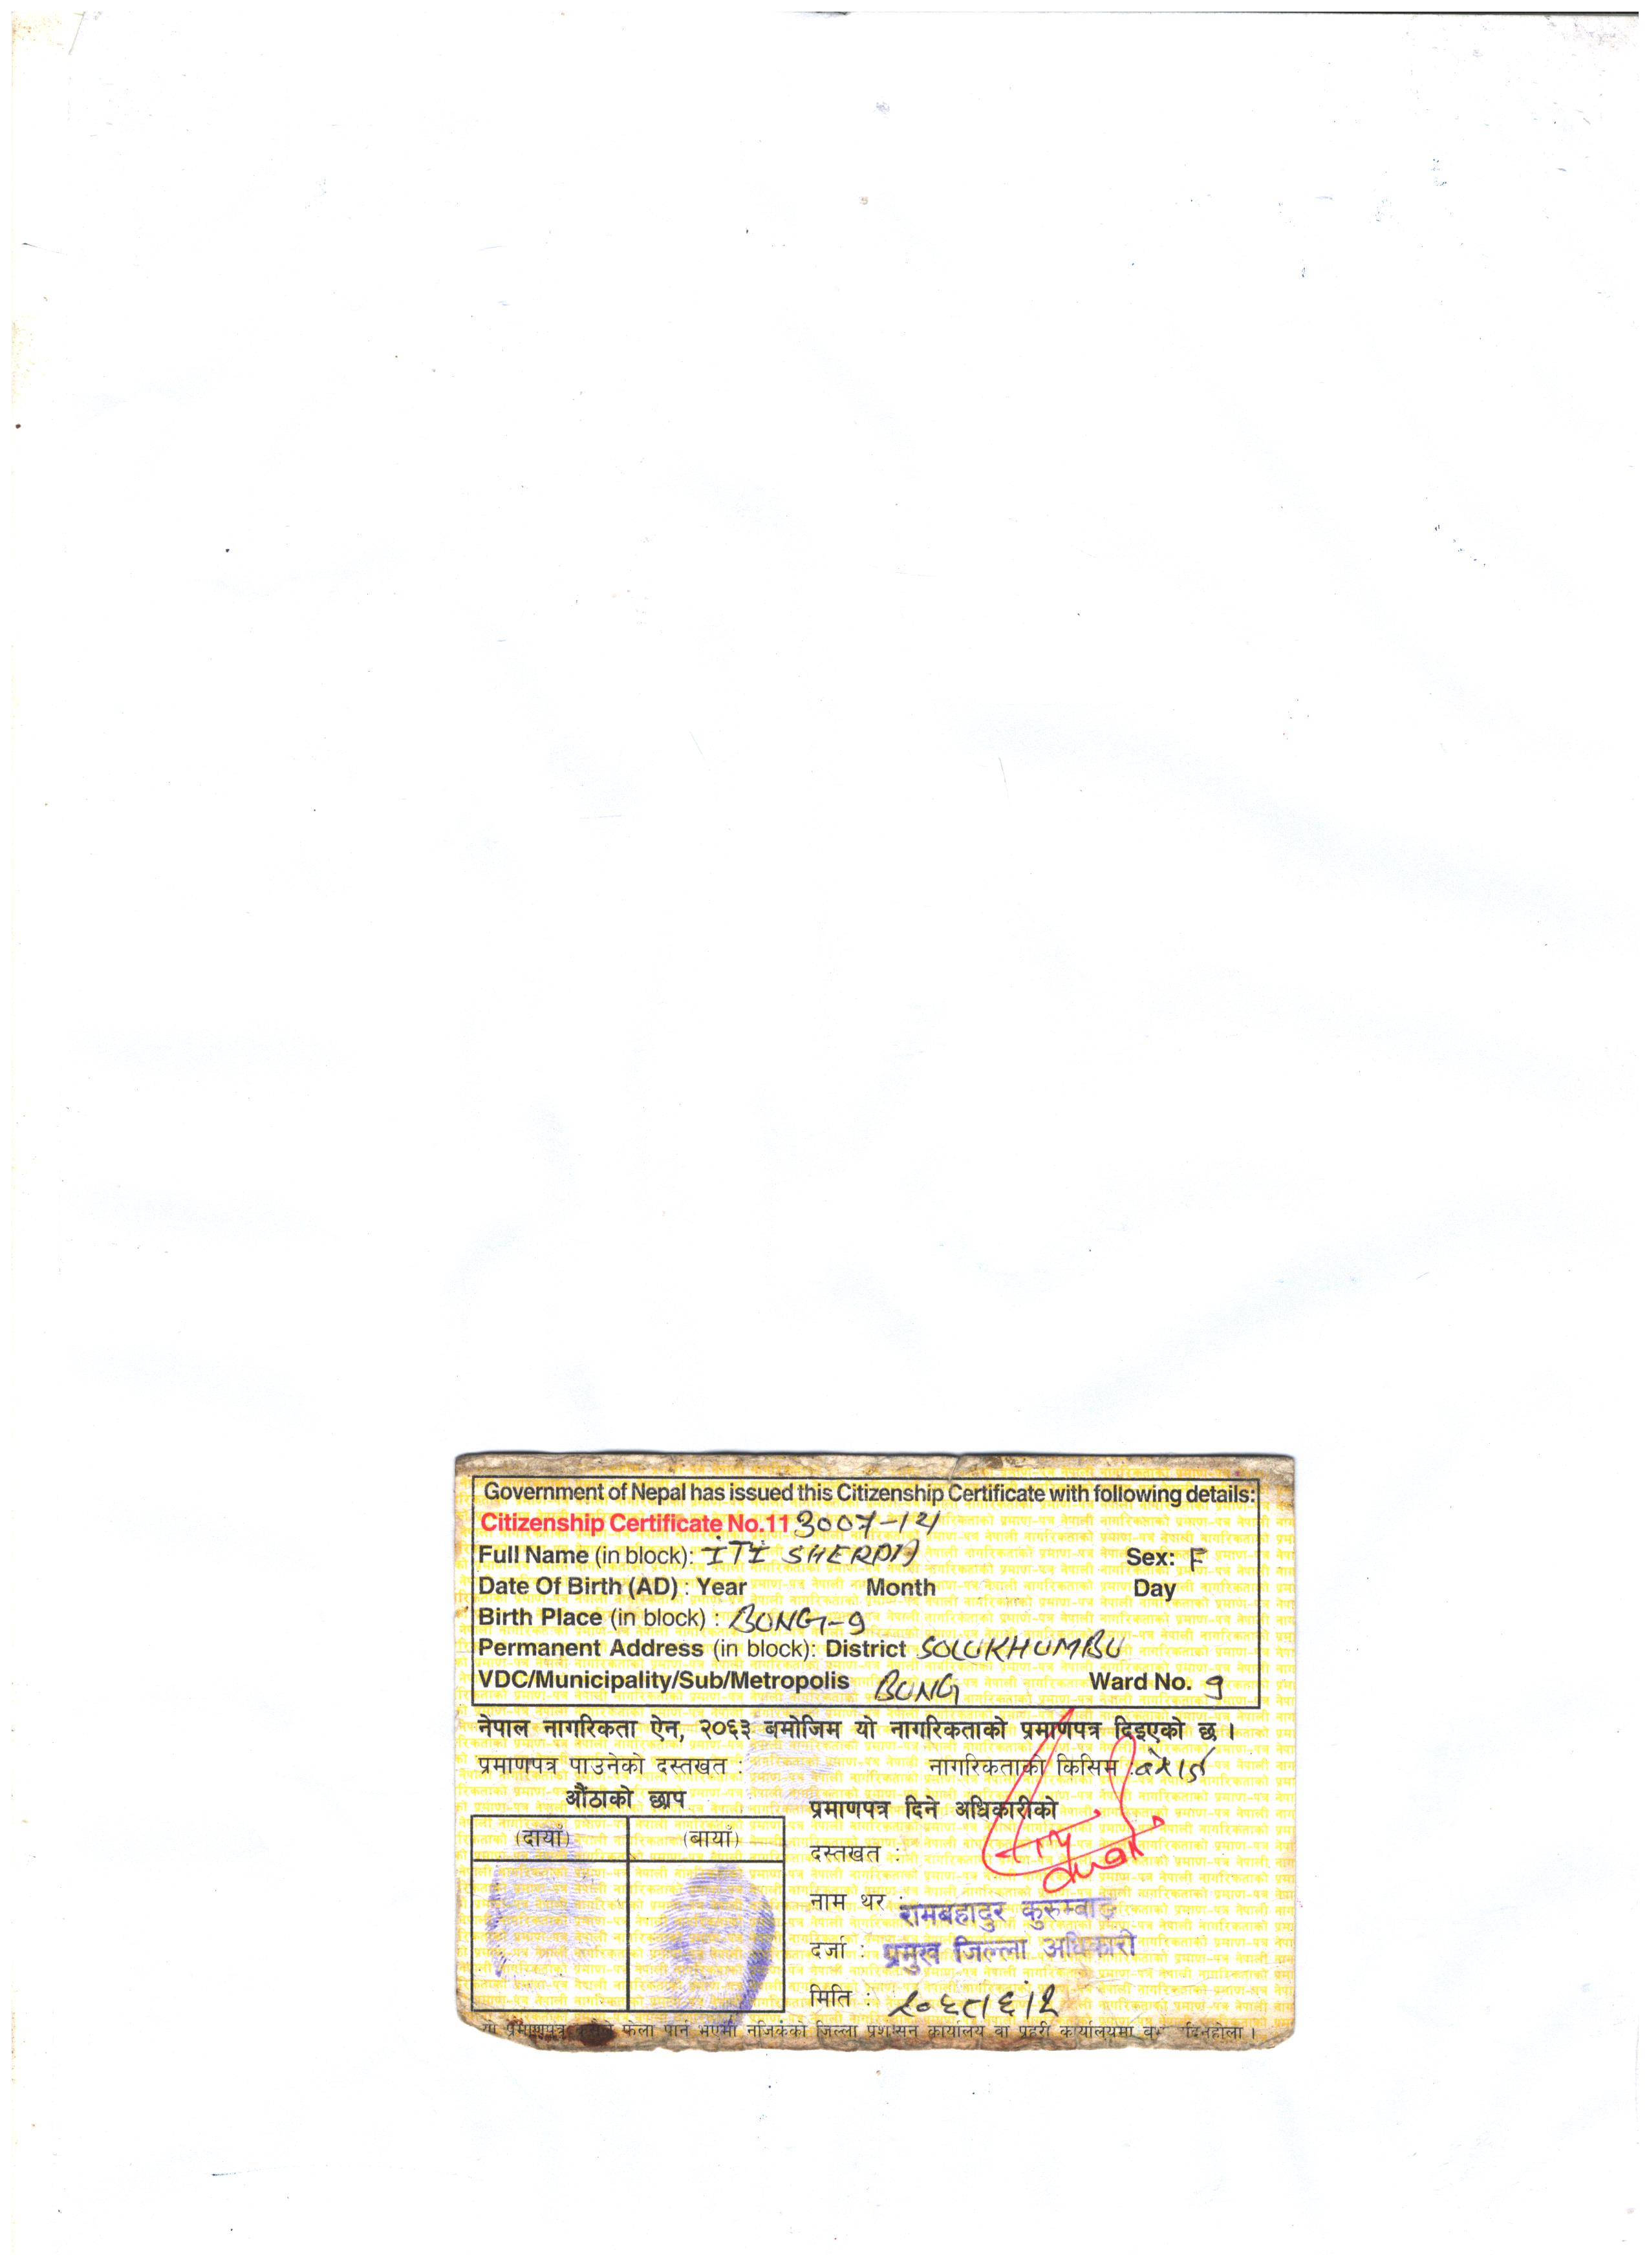 Government of Nepal has issued this Citizenship Certificate with following details:
Citizenship Certificate No.11 3007-14
Full Name (in block): ITI SHERPA Sex: F
Date Of Birth (AD) : Year Month Day
Birth Place (in block) : BUNG-9
Permanent Address (in block): District SOLUKHUMBU
VDC/Municipality/Sub/Metropolis BUNG Ward No. 9
नेपाल नागरिकता ऐन, २०६३ बमोजिम यो नागरिकताको प्रमाणपत्र दिइएको छ ।
प्रमाणपत्र पाउनेको दस्तखत : नागरिकताको किसिम :
औंठाको छाप
(दायाँ) (बायाँ)
प्रमाणपत्र दिने अधिकारीको
दस्तखत :
नाम थर : रामबहादुर कुरुम्बाङ
दर्जा : प्रमुख जिल्ला अधिकारी
मिति : २०६८।६।२
यो प्रमाणपत्र फेला पार्ने भएमा नजिकैको जिल्ला प्रशासन कार्यालय वा प्रहरी कार्यालयमा दिनुहोला ।